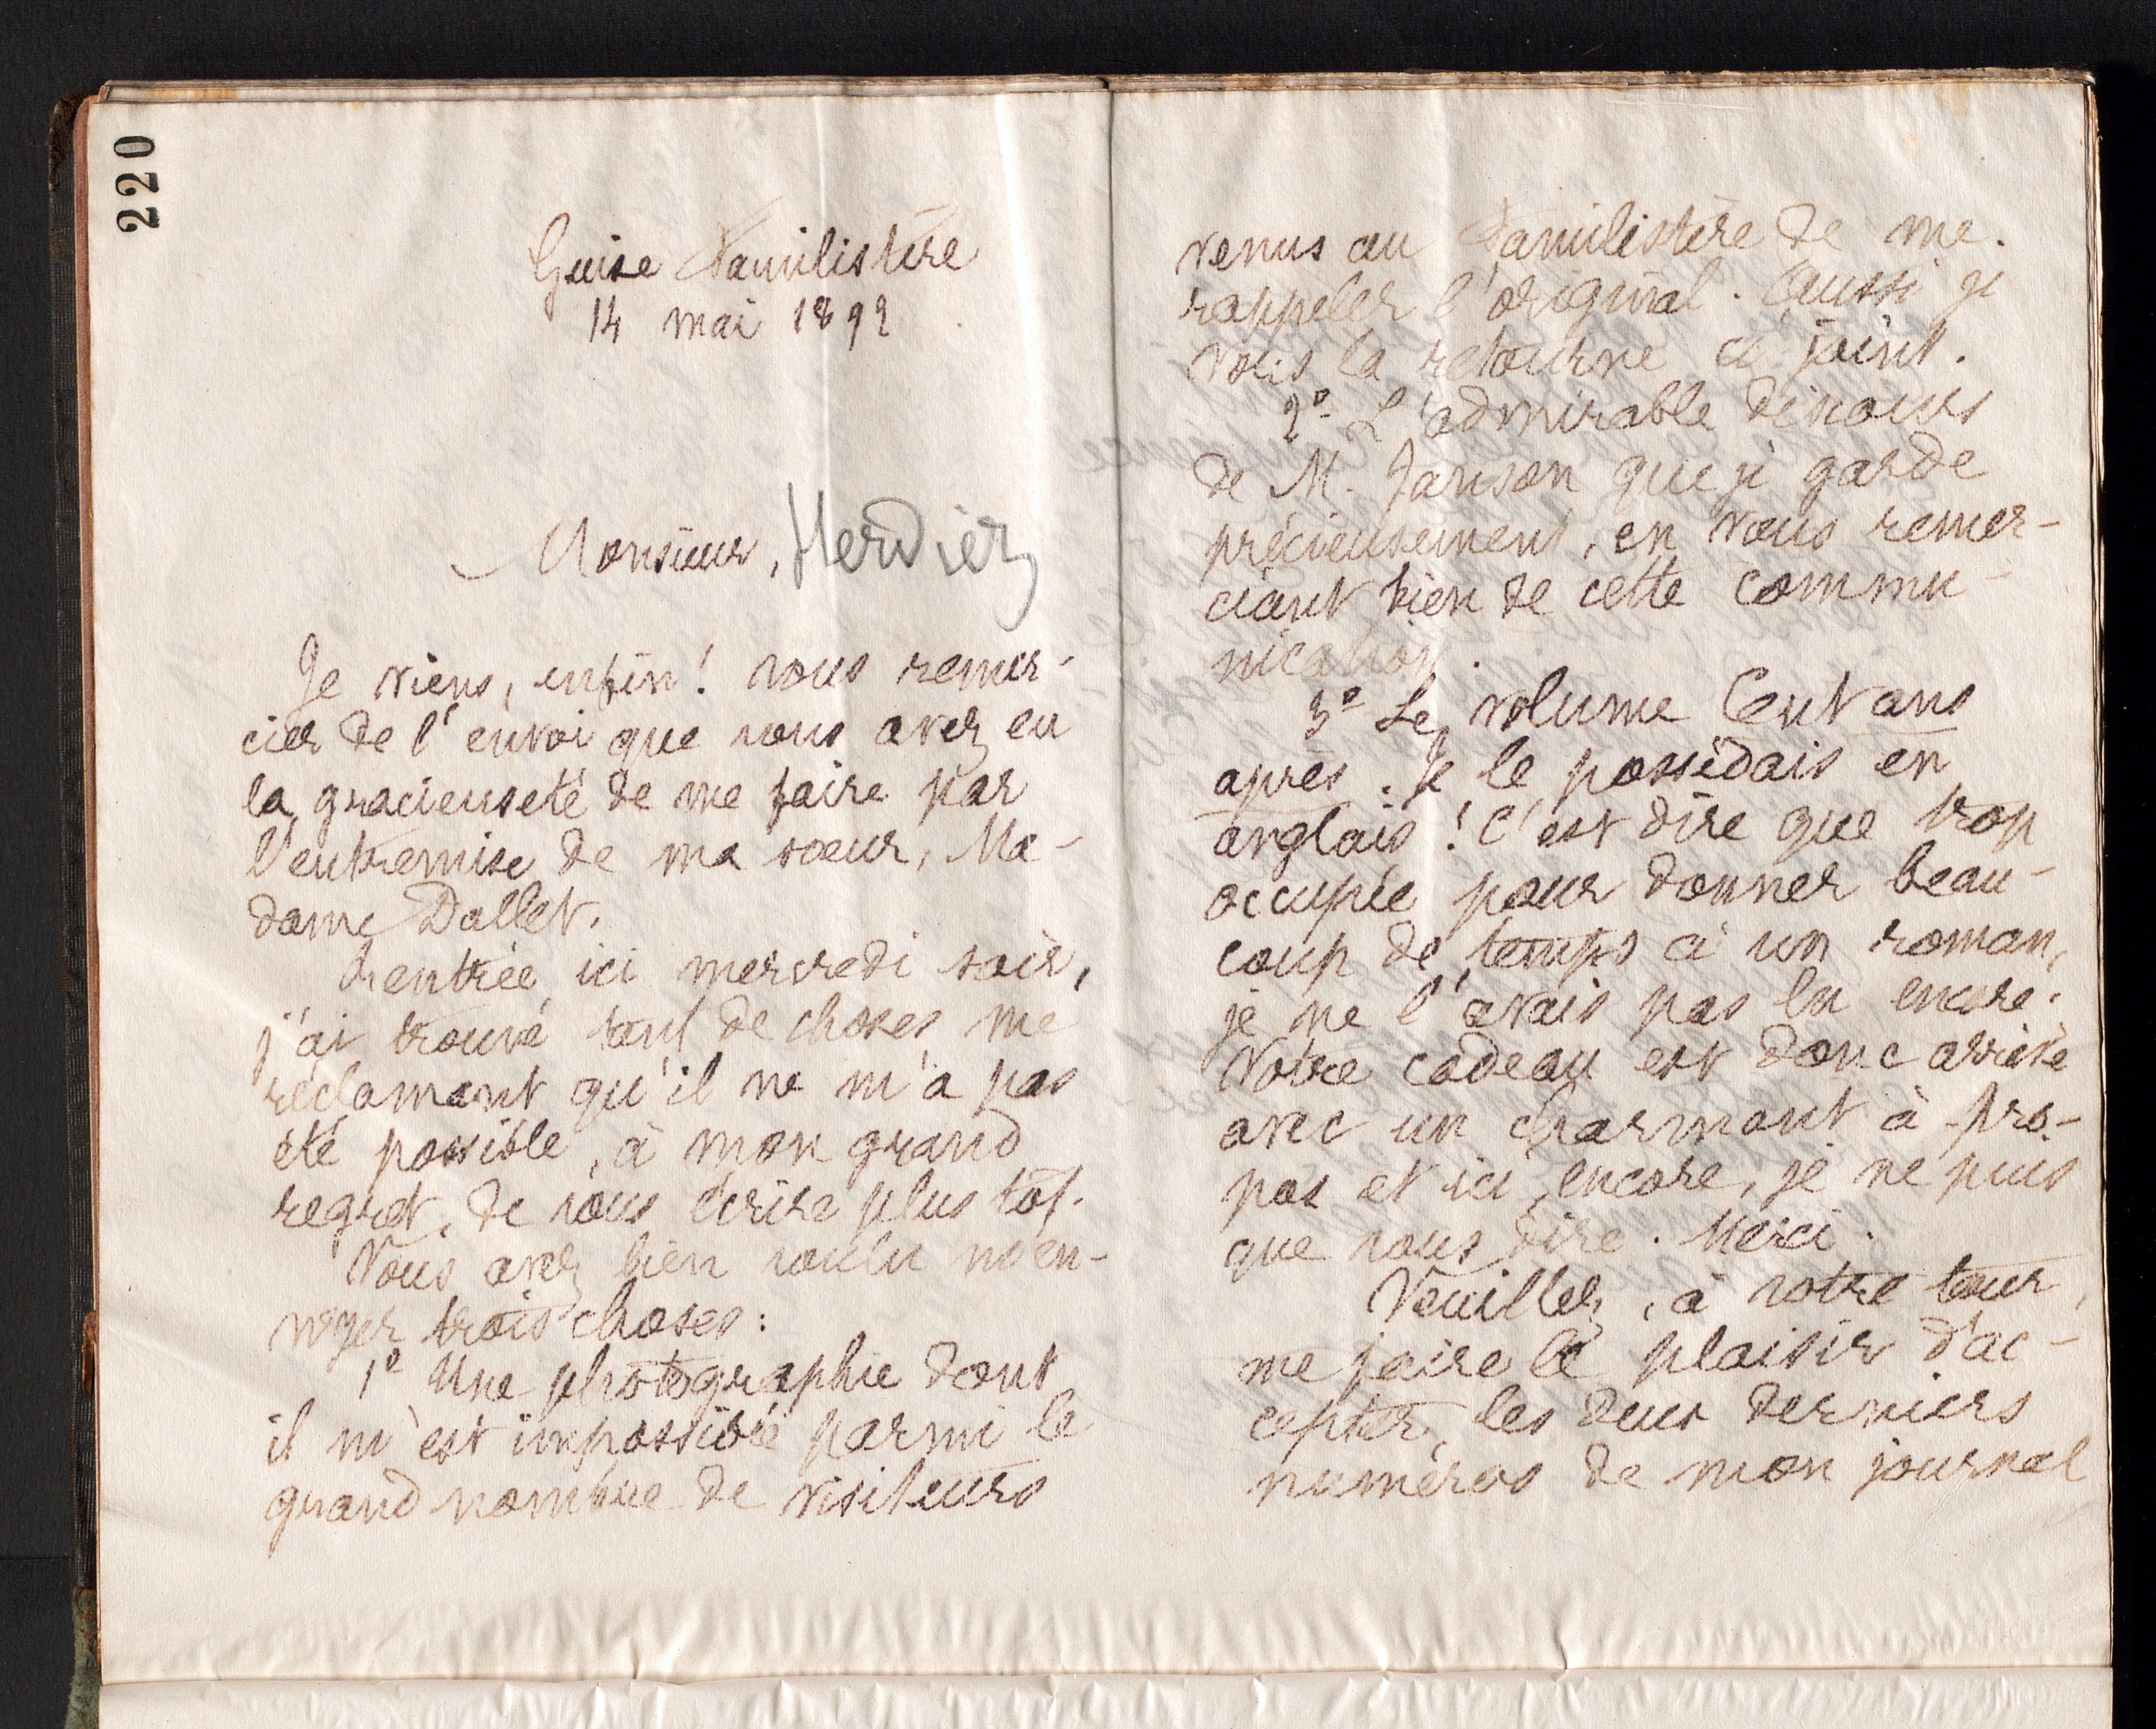 220
Guise Familistère
14 mai 1892
Monsieur, Herdiez
Je viens, enfin! vous remer-
cier de l'envoi que vous avez eu
la gracieuseté de me faire par
l'entremise de ma sœur, Ma-
dame Dallet.
Rentrée ici mercredi soir,
j'ai trouvé tant de choses me
réclamant qu'il ne m'a pas
été possible, à mon grand
regret, de vous écrire plus tôt.
Vous avez bien voulu m'en-
voyer trois choses:
1º Une photographie dont
il m'est impossible parmi le
grand nombre de visiteurs
venus au Familistère de me
rappeler l'original. Aussi je
vous la retourne ci-joint.
2º L'admirable discours
de M. Janson que je garde
précieusement, en vous remer-
ciant bien de cette commu-
nication.
3º Le volume Cent ans
après. Je le possédais en
anglais! C'est dire que trop
occupée pour donner beau-
coup de temps à un roman,
je ne l'avais pas lu encore.
Votre cadeau est donc arrivé
avec un charmant à pro-
pos et ici, encore, je ne puis
que vous dire. Merci.
Veuillez, à votre tour,
me faire le plaisir d'ac-
cepter, les deux derniers
numéros de mon journal